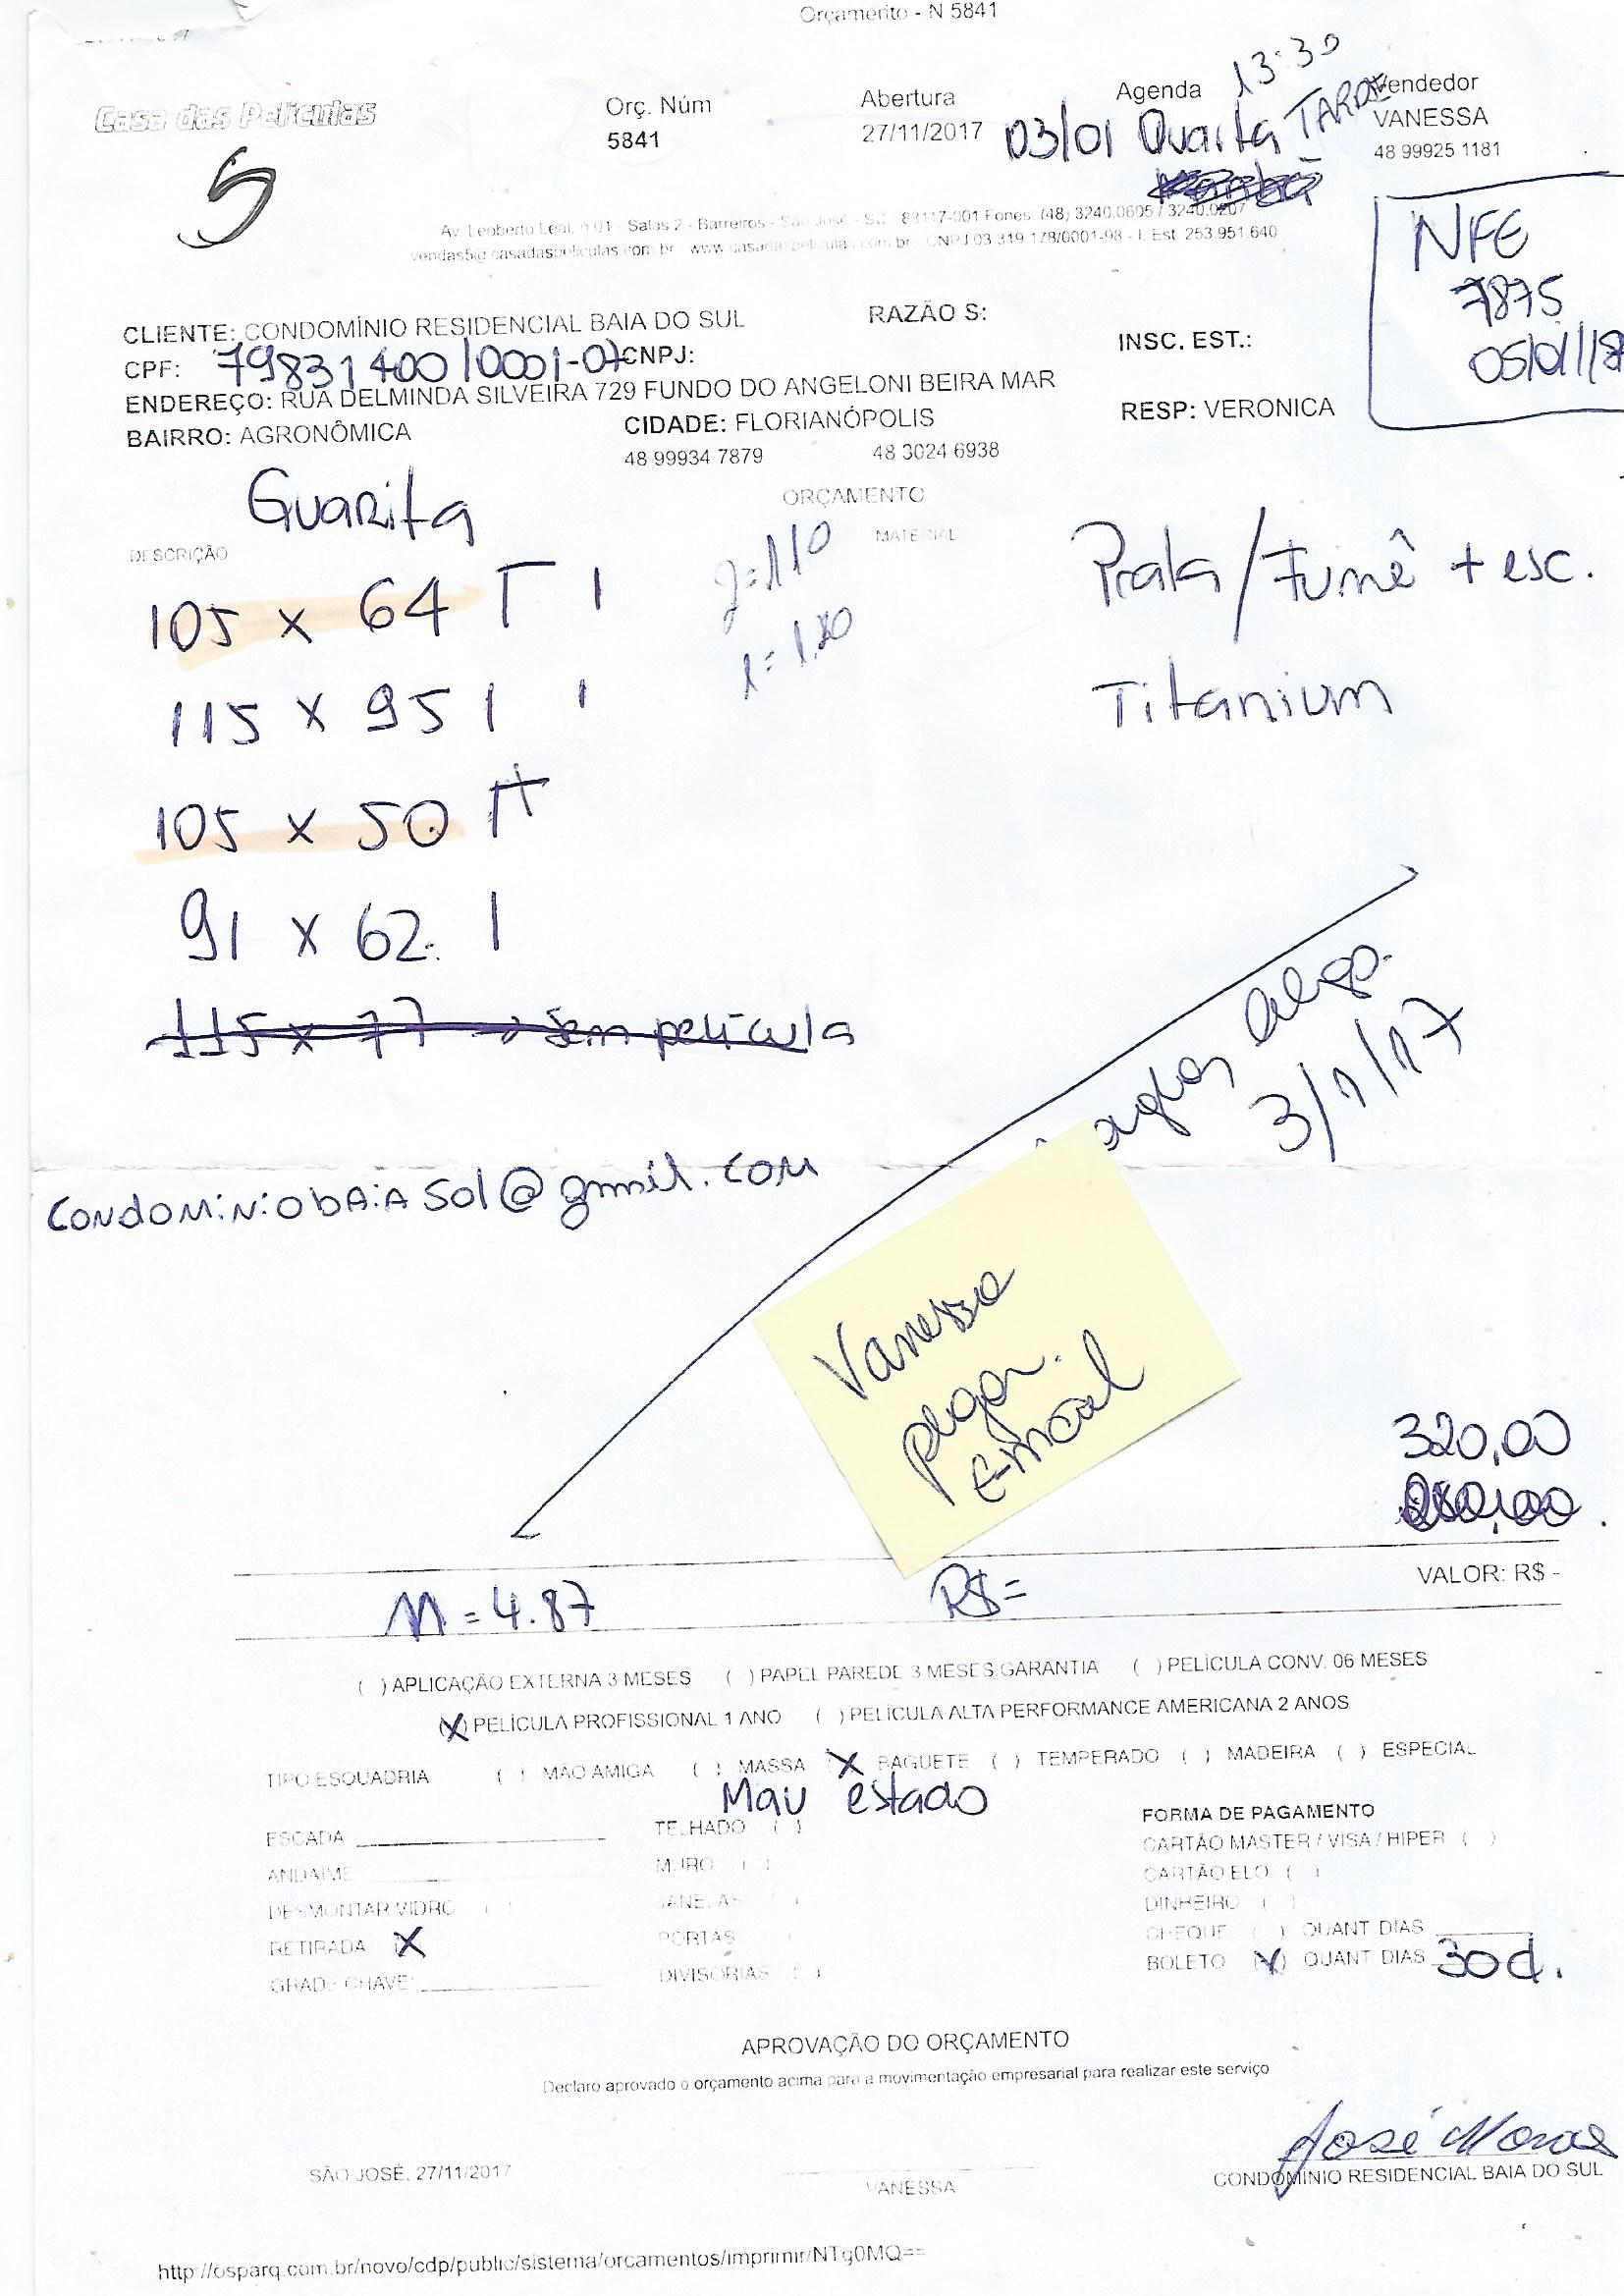 Orçamento - N 5841
13:30
Casa das Películas
Orç. Núm
5841
Abertura
27/11/2017
Agenda
03/01 Quarta TARDE
Vendedor
VANESSA
48 99925 1181
5
Av. Leoberto Leal, n 01 - Salas 2 - Barreiros - São José - SC - 88117-001 Fones: (48) 3240.0605 / 3240.0207
vendas5@casadaspeliculas.com.br - www.casadaspeliculas.com.br - CNPJ 03.319.178/0001-98 - I. Est. 253.951.640
NFE
7875
05/01/18
CLIENTE: CONDOMÍNIO RESIDENCIAL BAIA DO SUL
RAZÃO S:
CPF: 79831400/0001-07 CNPJ:
INSC. EST.:
ENDEREÇO: RUA DELMINDA SILVEIRA 729 FUNDO DO ANGELONI BEIRA MAR
BAIRRO: AGRONÔMICA
CIDADE: FLORIANÓPOLIS
RESP: VERONICA
48 99934 7879
48 3024 6938
Guarita
ORÇAMENTO
DESCRIÇÃO
MATERIAL
105 x 64
Prata/Fumê + esc.
115 x 95
Titanium
105 x 50
91 x 62
115 x 77 → sem película
3/1/17
condominiobaiasol@gmil.com
Vanessa
pegar
E-mail
320,00
M = 4.87
R$=
VALOR: R$ -
( ) APLICAÇÃO EXTERNA 3 MESES ( ) PAPEL PAREDE 3 MESES GARANTIA ( ) PELÍCULA CONV. 06 MESES
(X) PELÍCULA PROFISSIONAL 1 ANO ( ) PELÍCULA ALTA PERFORMANCE AMERICANA 2 ANOS
TIPO ESQUADRIA ( ) MÃO AMIGA ( ) MASSA X BAGUETE ( ) TEMPERADO ( ) MADEIRA ( ) ESPECIAL
Mau estado
ESCADA
TELHADO ( )
FORMA DE PAGAMENTO
CARTÃO MASTER / VISA / HIPER ( )
ANDAIME
MURO ( )
CARTÃO ELO ( )
DESMONTAR VIDRO ( )
JANELAS ( )
DINHEIRO ( )
RETIRADA X
PORTAS
CHEQUE ( ) QUANT DIAS
BOLETO (X) QUANT DIAS 30d.
GRADE CHAVE:
DIVISÓRIAS ( )
APROVAÇÃO DO ORÇAMENTO
Declaro aprovado o orçamento acima para a movimentação empresarial para realizar este serviço
SÃO JOSÉ, 27/11/2017
VANESSA
CONDOMÍNIO RESIDENCIAL BAIA DO SUL
http://osparq.com.br/novo/cdp/public/sistema/orcamentos/imprimir/NTg0MQ==